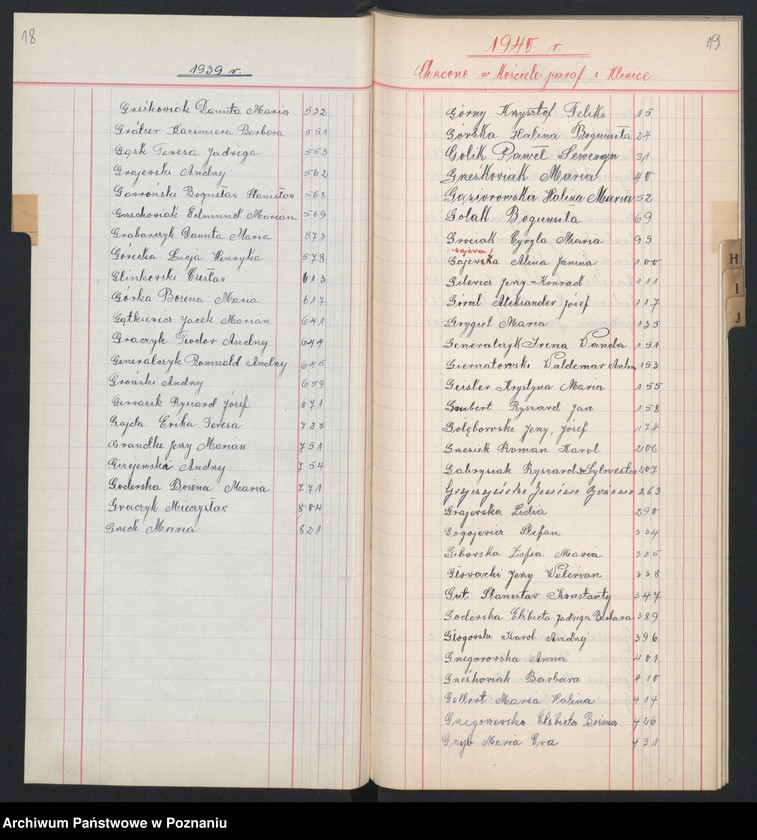 18
1939 r.
Grześkowiak Danuta Maria 532
Grätzer Kazimiera Barbara 551
Gąsk Teresa Jadwiga 553
Grajewski Andrzej 562
Gawroński Bogusław Stanisław 568
Grzechowiak Edmund Marian 569
Grabarczyk Danuta Maria 573
Górecka Łucja Henryka 578
Glinkowski Gustaw 613
Górka Bożena Maria 617
Gątkiewicz Jacek Marian 641
Graczyk Teodor Andrzej 644
Generalczyk Romuald Andrzej 645
Groński Andrzej 659
Ryszard Józef 671
Gajda Erika Teresa 727
Grandke Jerzy Marian 751
Giżejewski Andrzej 754
Goderska Bożena Maria 771
Graczyk Mieczysław 804
Grzeck Maria 821
19
1940 r.
Chrzcone w Kościele paraf.
Górny Krzysztof Feliks 15
Górska Halina Bogumiła 27
Golik Paweł Seweryn 31
Grześkowiak Maria 40
Gąsiorowska Halina Maria 52
Golak Bogumiła 69
Grociak Cyryla Maria 95
Gajewska Alina Janina 100
Gilewicz Jerzy Konrad 111
Góral Aleksander Józef 117
Grygiel Maria 135
Generalczyk Irena Wanda 151
Giernatowski Waldemar Antoni 153
Geisler Krystyna Maria 155
Graubert Ryszard Jan 158
Gołębowski Jerzy, Józef 174
Gnesiek Roman Karol 206
Gabrysiak Ryszard Sylwester 207
263
Grajewska Lidia 290
Gogojewicz Stefan 334
Giborska Zofia Maria 335
Głowacki Jerzy Walerian 338
Gut Stanisław Konstanty 347
Goderska Elżbieta Jadwiga Barbara 389
Głogowski Karol Andrzej 396
Grzegorowska Anna 401
Grześkowiak Barbara 410
Gellert Maria Halina 414
Grzegorzewska Elżbieta Bożena 426
Grzyb Maria Ewa 431
H
I
J
Archiwum Państwowe w Poznaniu